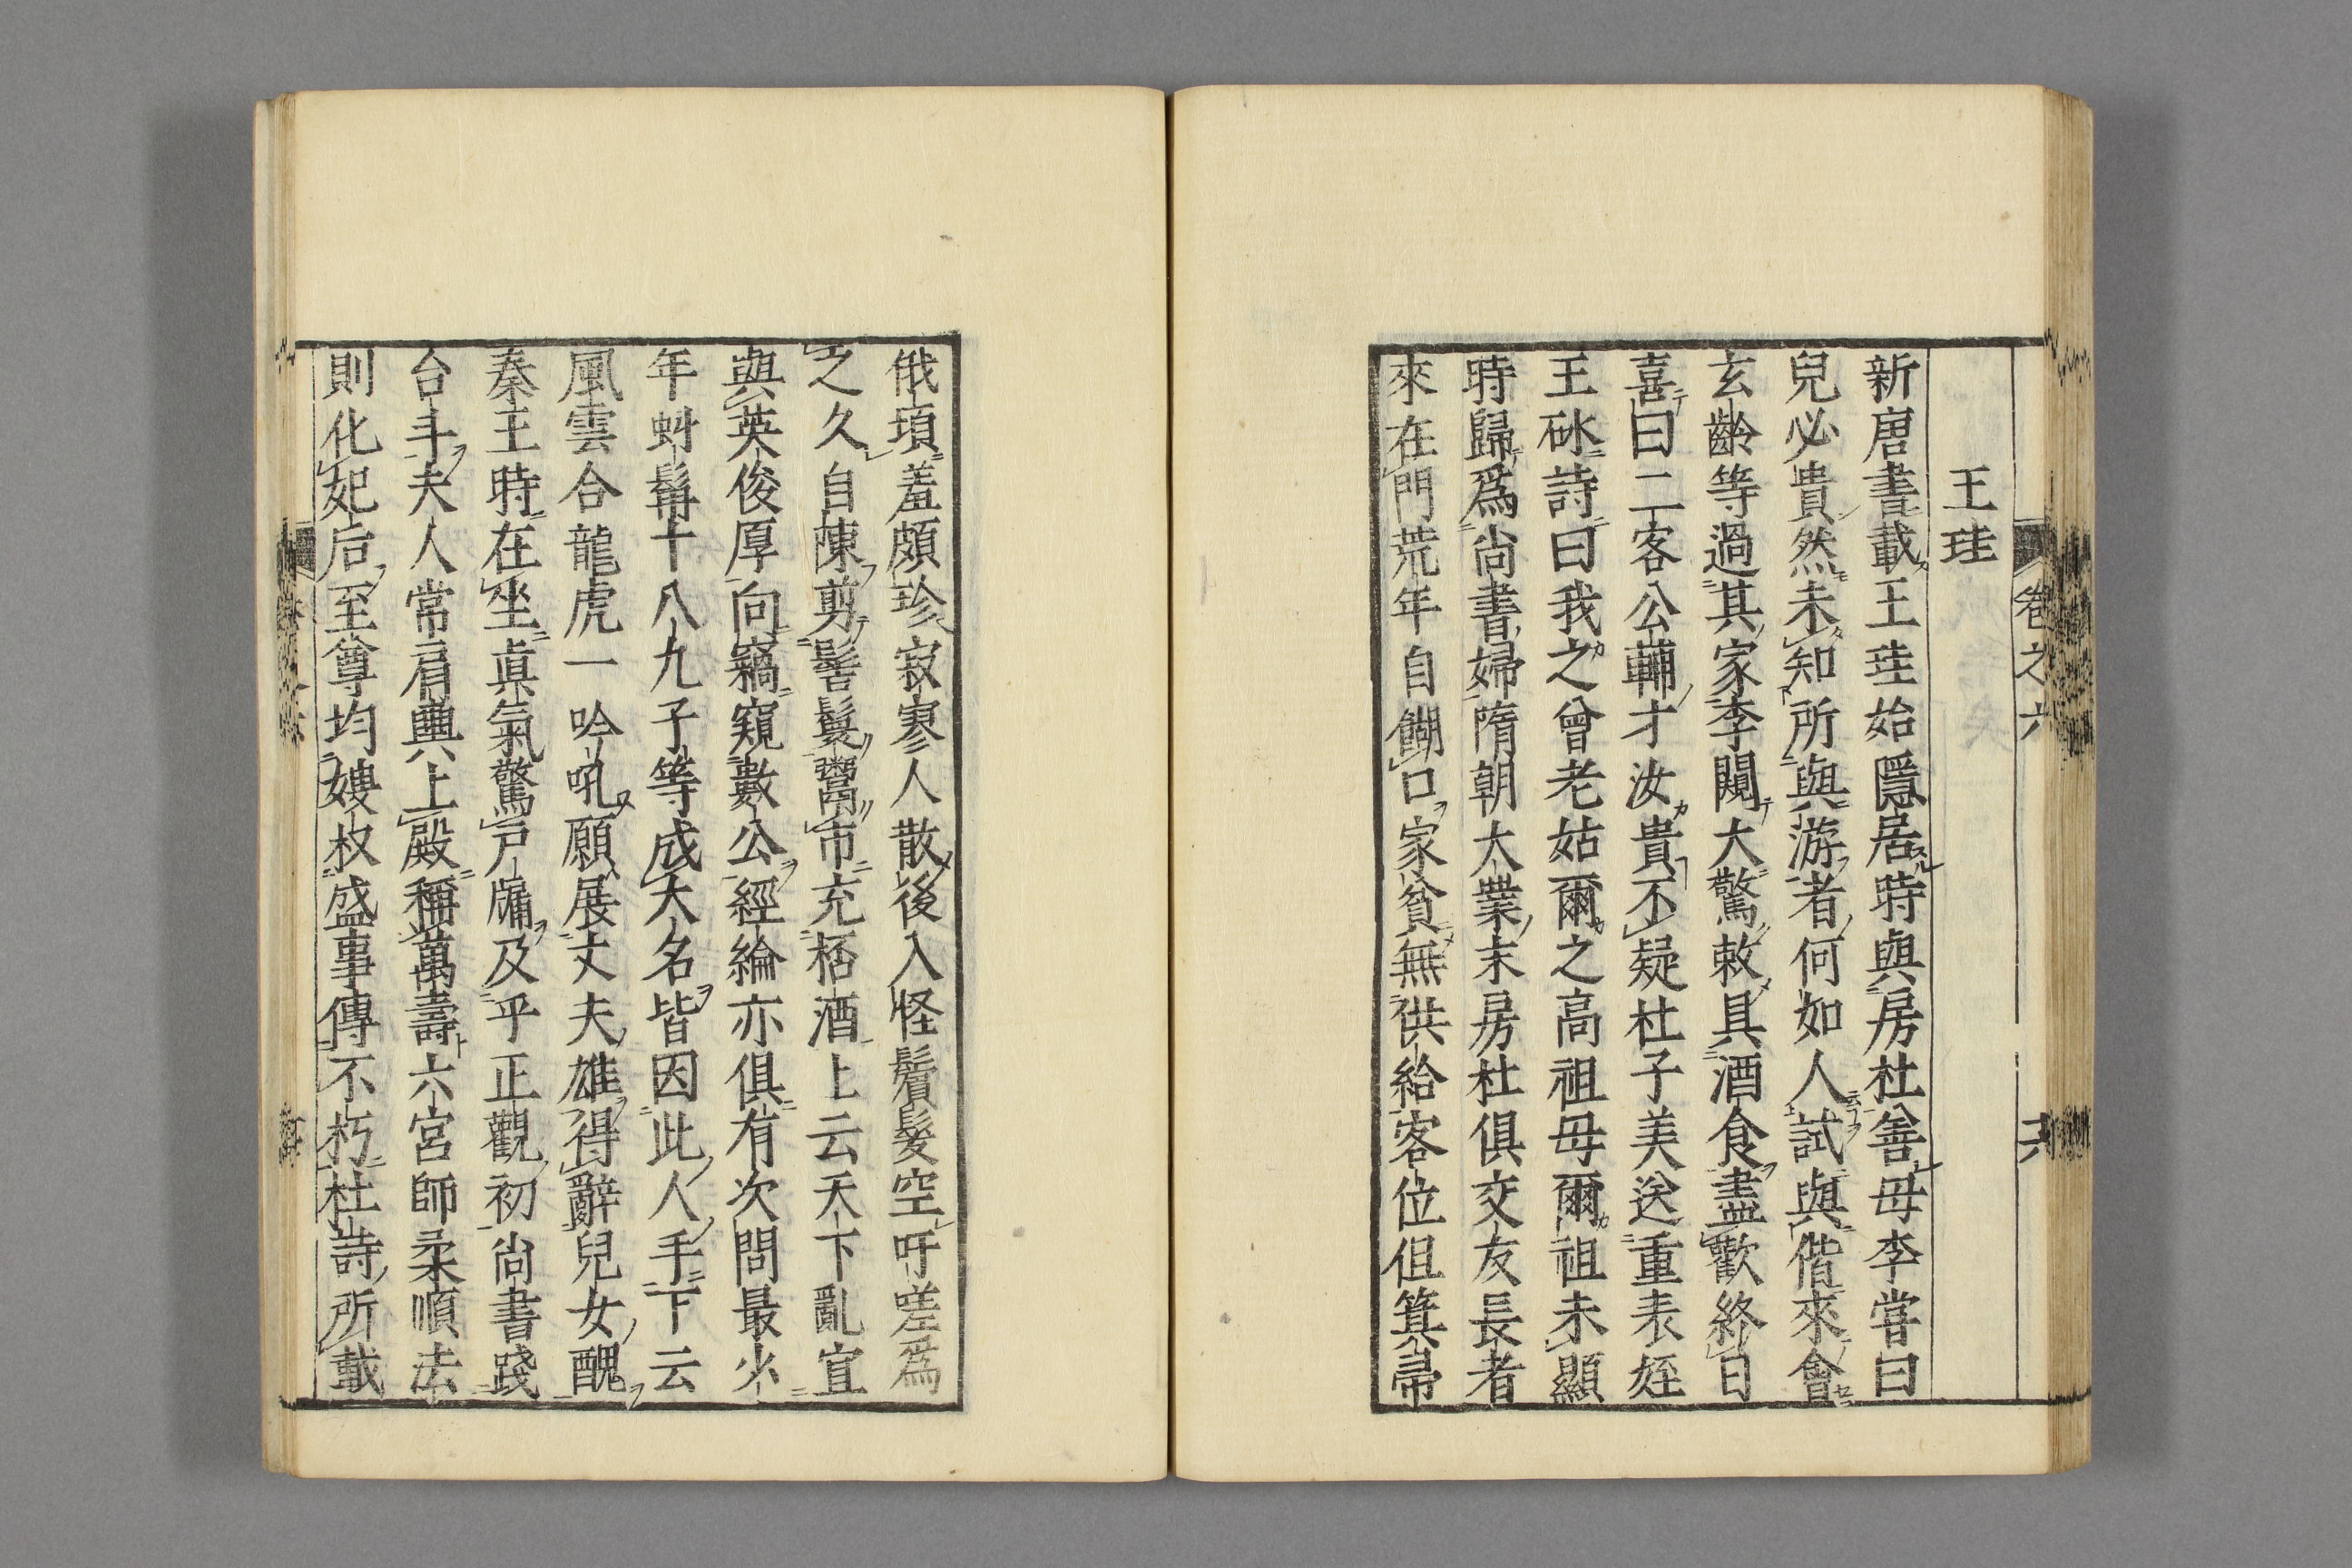 卷之六
六
王珪
新唐書載王珪始隱居時與房杜善母李嘗曰
兒必貴然未知所與游者何如人試與偕來會
玄齡等過其家李闚大驚敕具酒食盡歡終日
喜曰二客公輔才汝貴不疑杜子美送重表姪
王砅詩曰我之曾老姑爾之高祖母爾祖未顯
時歸爲尚書婦隋朝大業末房杜俱交友長者
來在門荒年自餬口家貧無供給客位但箕帚
俄頃羞頗珍寂寥人散後入怪鬢髮空吁嗟爲
之久自陳剪髻鬟鬻市充杯酒上云天下亂宜
與英俊厚向竊窺數公經綸亦俱有次問最少
年虯髯十八九子等成大名皆因此人手下云
風雲合龍虎一吟吼願展丈夫雄得辭兒女醜
秦王時在坐眞氣驚戸牖及乎正觀初尚書踐
台斗夫人常肩輿上殿稱萬壽六宮師柔順法
則化妃后至尊均嫂叔盛事傳不朽杜詩所載